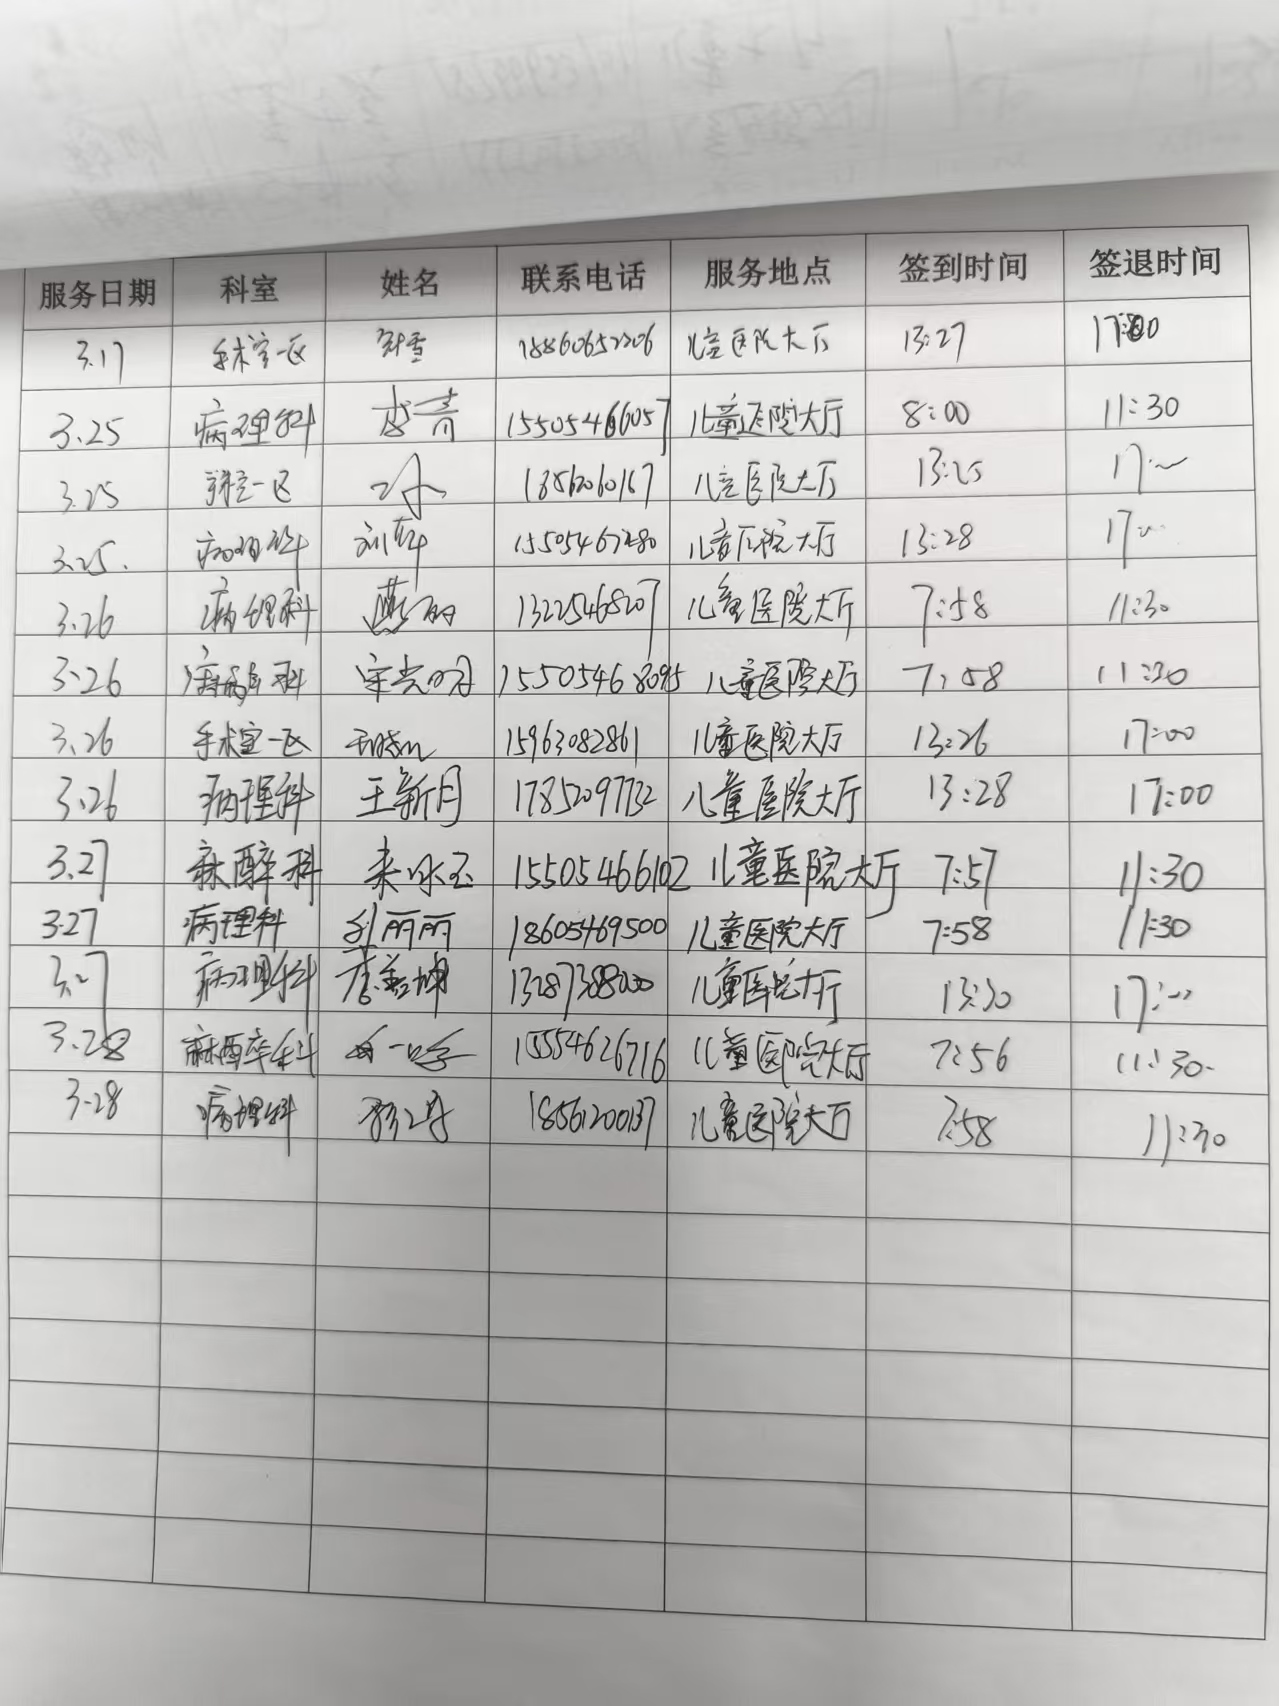 服务日期 科室 姓名 联系电话 服务地点 签到时间 签退时间
3.17 手术室一区 18860652206 儿童医院大厅 13:27 17:00
3.25 病理科 李青 15505466057 儿童医院大厅 8:00 11:30
3.25 手术室一区 儿童医院大厅 13:25 17:
3.25. 病理科 15505467280 儿童医院大厅 13:28 17:
3.26 病理科 燕丽 13225468207 儿童医院大厅 7:58 11:30
3.26 科 宋光明 15505468095 儿童医院大厅 7:58 11:30
3.26 手术室一区 15963082861 儿童医院大厅 13:26 17:00
3.26 病理科 王新月 17852097732 儿童医院大厅 13:28 17:00
3.27 麻醉科 来冰玉 15505466102 儿童医院大厅 7:57 11:30
3.27 病理科 刘丽丽 18605469500 儿童医院大厅 7:58 11:30
3.27 病理科 儿童医院大厅 13:30 17:
3.28 麻醉科 15554626716 儿童医院大厅 7:56 11:30.
3.28 病理科 18561200137 儿童医院大厅 7:58 11:30